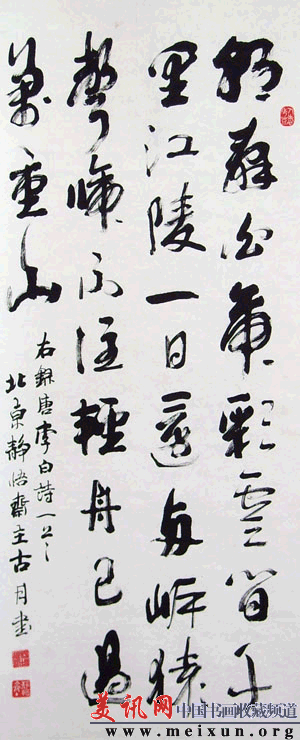 朝辭白帝彩雲間千
里江陵一日還兩岸猿
聲啼不住輕舟已過
萬重山
右錄唐李白詩一首
北京靜悟齋主古月書
美讯网 中国书画收藏频道
www.meixun.org